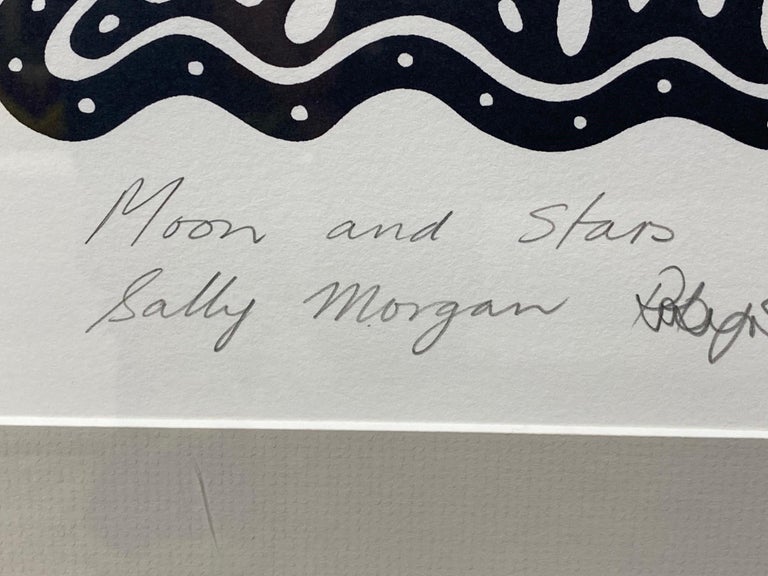 Moon and Stars
Sally Morgan